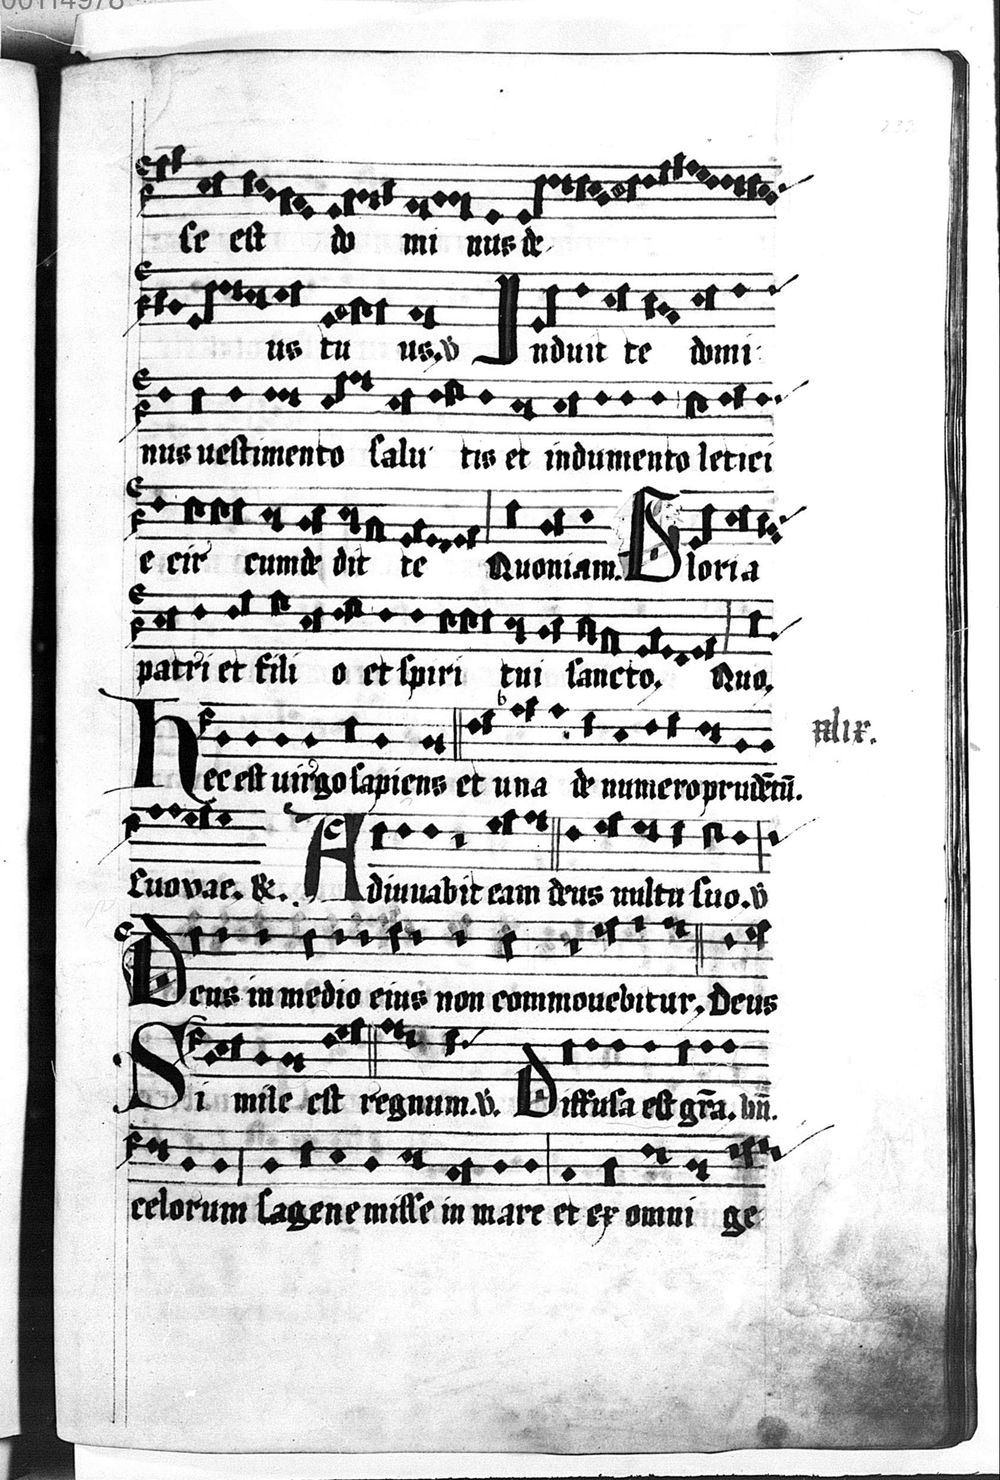 00114978
se est do mi nus de
us tu us. v Induit te domi
nus uestimento salu tis et indumento letici
e cir cumde dit te Quoniam. Gloria
patri et fili o et spiri tui sancto. Quo.
Hec est uirgo sapiens et una de numero prudētū.
Euovae. &. Adiuuabit eam deus uultu suo. v
Deus in medio eius non commouebitur. Deus
Simile est regnum. v. Diffusa est gr̄a. bn̄.
celorum sagene misse in mare et ex omni ge